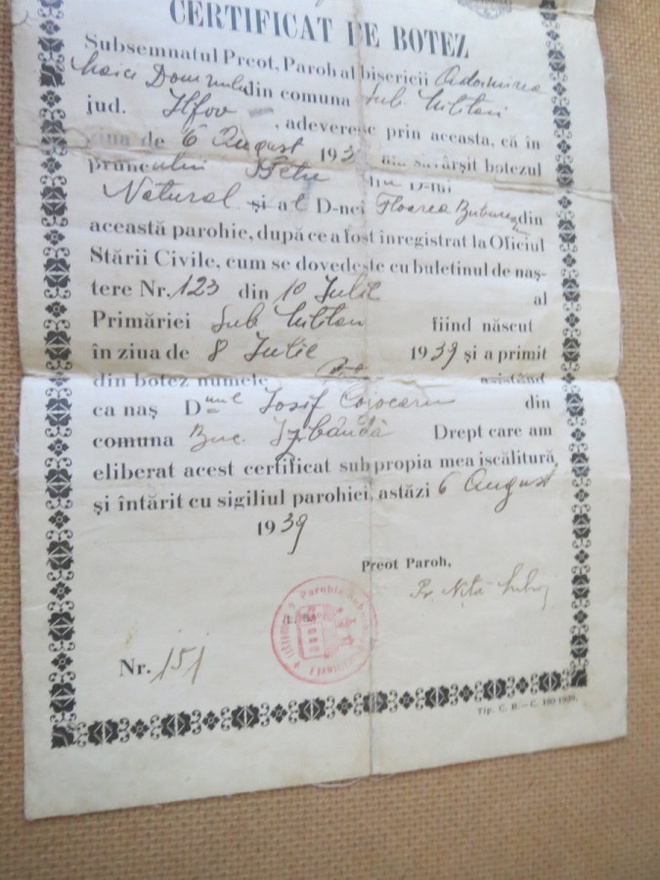 CERTIFICAT DE BOTEZ
Subsemnatul Preot, Paroh al bisericii Adormirea
Maicii Domnului din comuna Sub. Militari
jud. Ilfov , adeveresc prin aceasta, că în
ziua de 6 August 193 am săvârșit botezul
pruncului Petru D-nui
Natural și al D-nei Floarea din
această parohie, după ce a fost înregistrat la Oficiul
Stării Civile, cum se dovedește cu buletinul de naș-
tere Nr. 123 din 10 Iulie al
Primăriei Sub. Militari fiind născut
în ziua de 8 Iulie 1939 și a primit
din botez numele asistând
ca naș Dnul Iosif din
comuna Buc. Drept care am
eliberat acest certificat sub propia mea iscălitură
și întărit cu sigiliul parohiei, astăzi 6 August
1939
Preot Paroh,
Pr. Niță
Parohia
Nr. 151
Tip. C. B.—C. 160-1939.